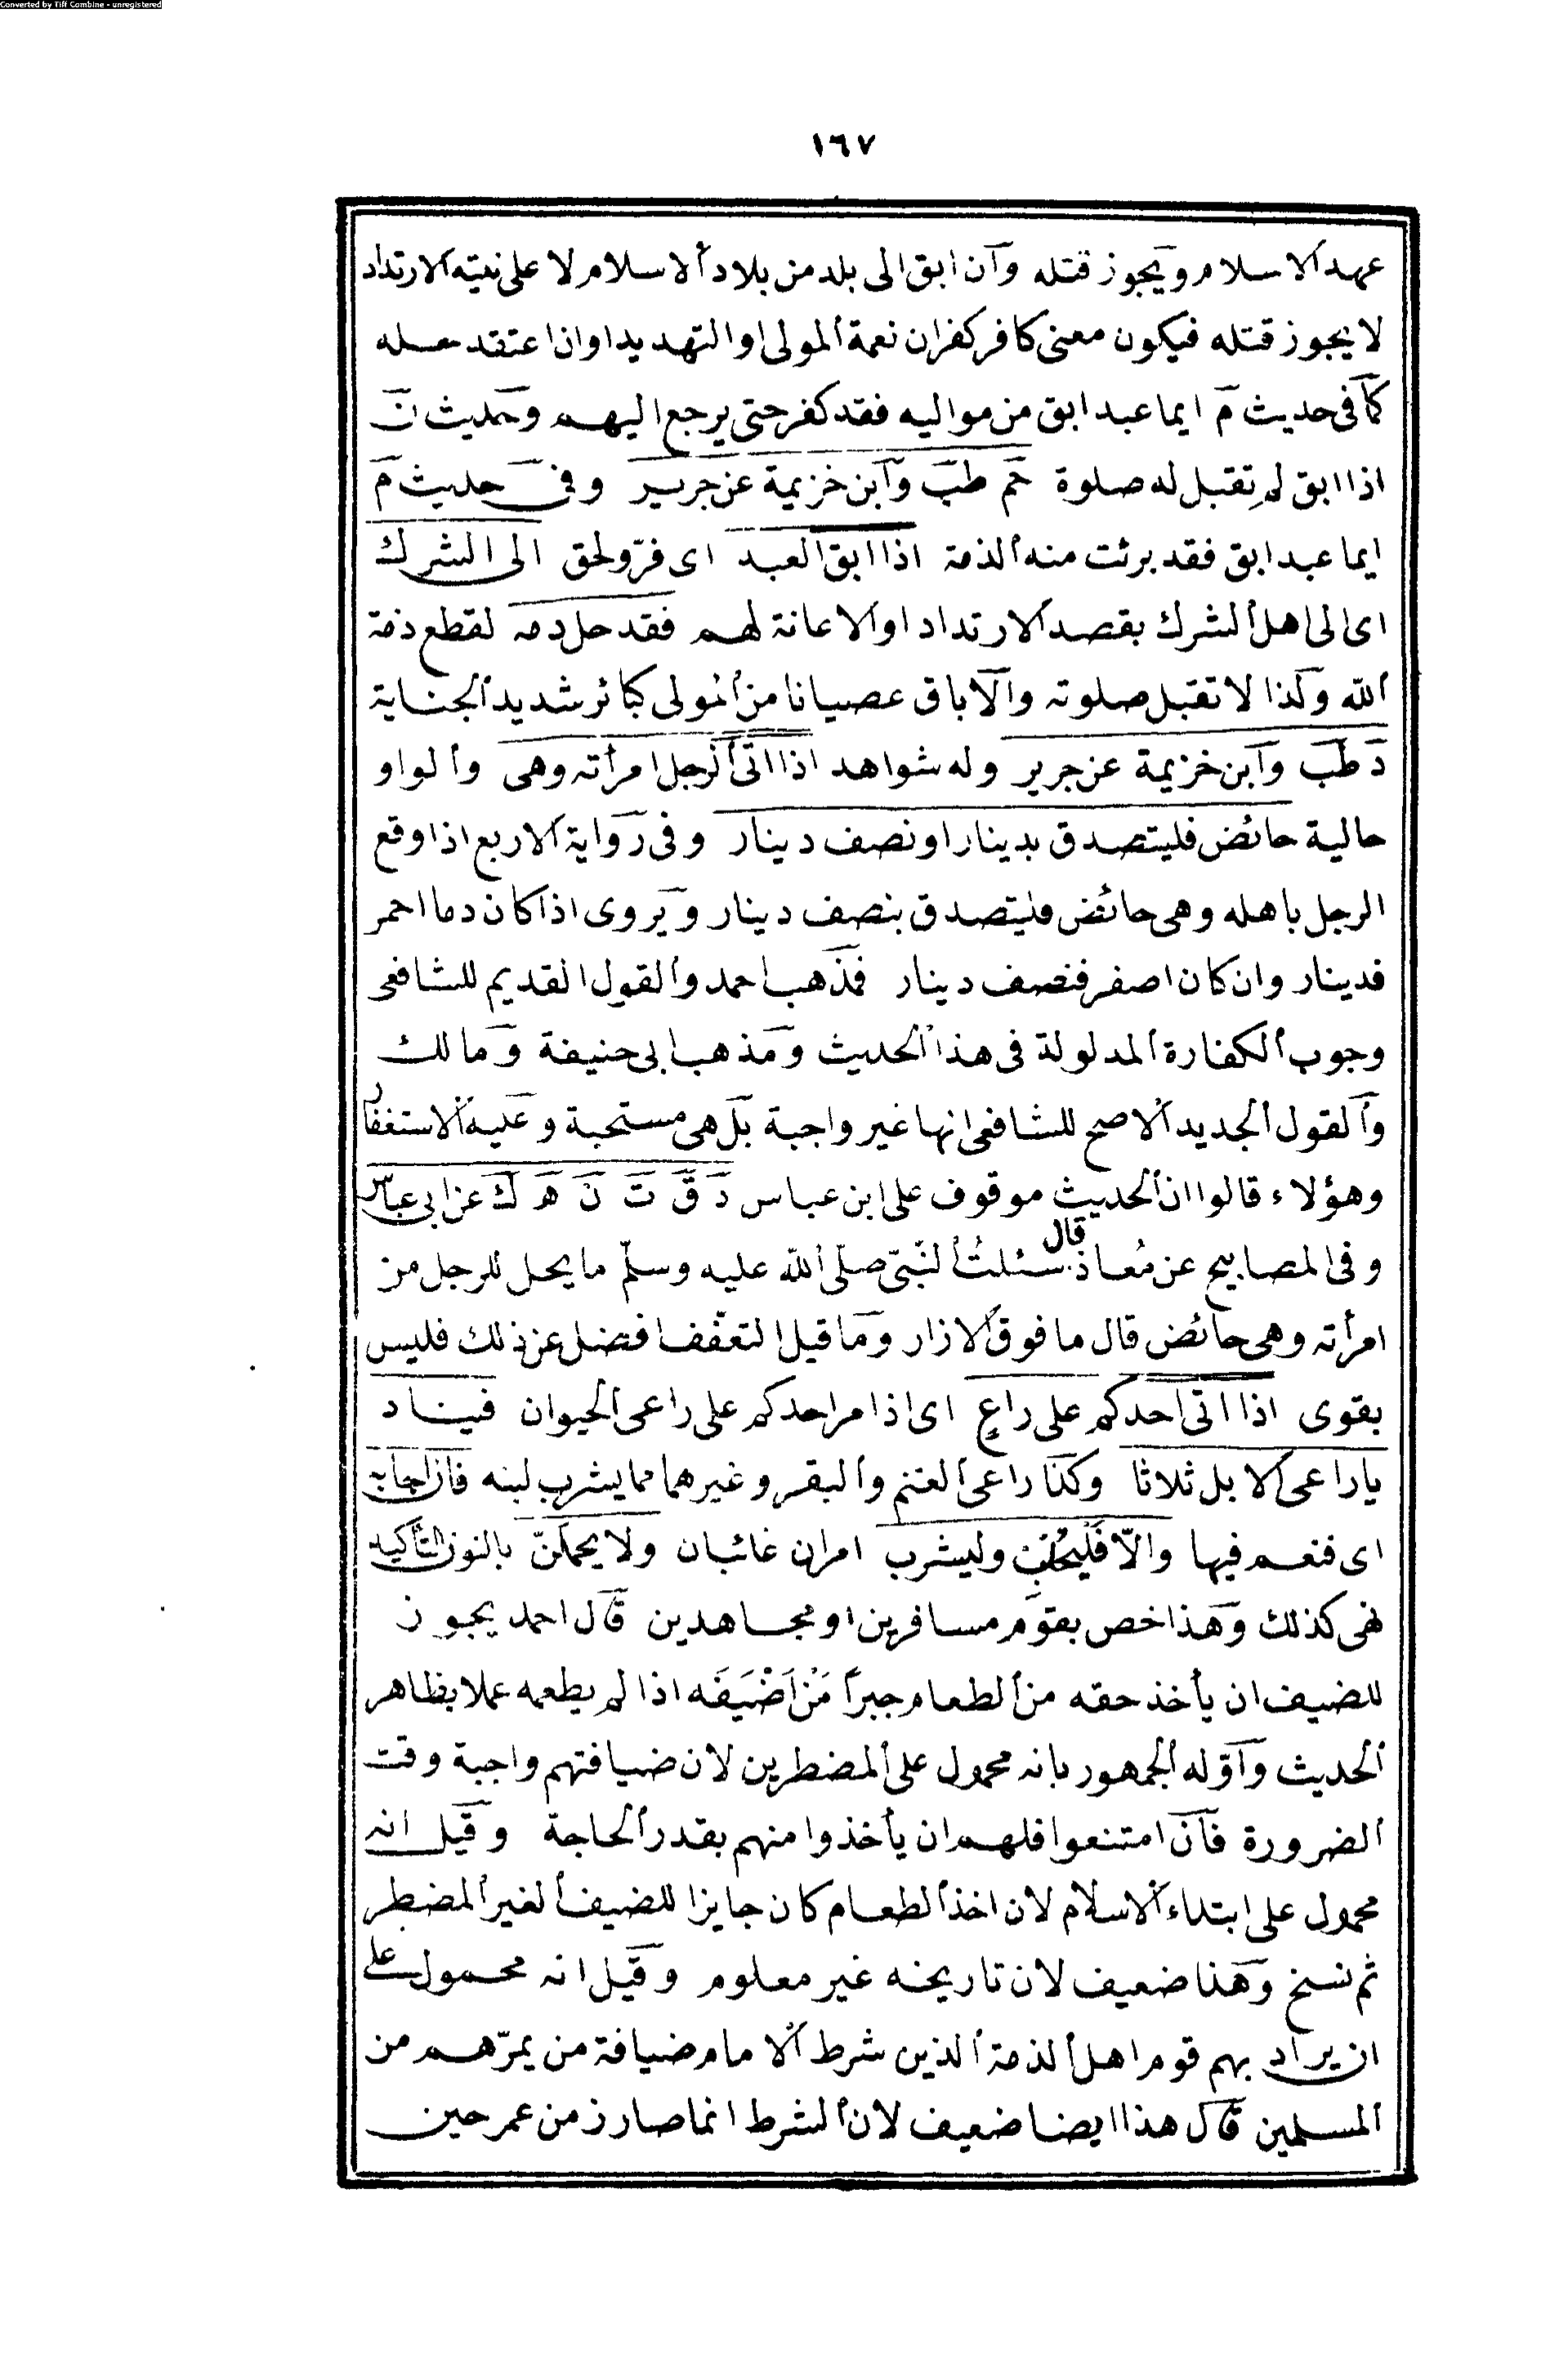 Converted by Tiff Combine - unregistered
١٦٧
عهد الاسلام ويجوز قتله وان ابق الى بلد من بلاد الاسلام لا على نية الارتداد
لا يجوز قتله فيكون معنى كافر كفران نعمة المولى او التهديد او ان اعتقد حله
كما فى حديث م ايما عبد ابق من مواليه فقد كفر حتى يرجع اليهم وحديث ن
اذا ابق لم تقبل له صلوة حم طب وابن خزيمة عن جرير وفى حديث م
ايما عبد ابق فقد برئت منه الذمة اذا ابق العبد اى فرّ ولحق الى الشرك
اى الى اهل الشرك بقصد الارتداد او الاعانة لهم فقد حل دمه لقطع ذمة
الله وكذا لا تقبل صلوته والاباق عصيانا من المولى كبائر شديد الجناية
د طب وابن خزيمة عن جرير وله شواهد اذا اتى الرجل امرأته وهى والواو
حالية حائض فليتصدق بدينار او نصف دينار وفى رواية الاربع اذا وقع
الرجل باهله وهى حائض فليتصدق بنصف دينار ويروى اذا كان دما احمر
فدينار وان كان اصفر فنصف دينار فمذهب احمد والقول القديم للشافعى
وجوب الكفارة المدلولة فى هذا الحديث ومذهب ابى حنيفة ومالك
والقول الجديد الاصح للشافعى انها غير واجبة بل هى مستحبة وعليه الاستغفار
وهؤلاء قالوا ان الحديث موقوف على ابن عباس د ق ت ن ه ك عن ابى عباس
وفى المصابيح عن مُعاذ قال سئلتُ النّبىّ صلّى الله عليه وسلّم ما يحل للرجل من
امرأته وهى حائض قال ما فوق الازار وما قيل التعفّف افضل عن ذلك فليس
بقوى اذا اتى احدكم على راعٍ اى اذا مر احدكم على راعى الحيوان فيناد
يا راعى الابل ثلاثا وكذا راعى الغنم والبقر وغيرهما مما يشرب لبنه فان اجابه
اى فنعم فيها والّا فَلْيَحْلُبْ وليشرب امران غائبان ولا يحملَنّ بالنون التأكيد
نهى كذلك وهذا خص بقوم مسافرين او مجاهدين قال احمد يجوز
للضيف ان يأخذ حقه من الطعام جبراً مَنْ اَضْيَفَه اذا لم يطعمه عملا بظاهر
الحديث واوّله الجمهور بانه محمول على المضطرين لان ضيافتهم واجبة وقت
الضرورة فان امتنعوا فلهم ان يأخذوا منهم بقدر الحاجة وقيل انه
محمول على ابتداء الاسلام لان اخذ الطعام كان جايزا للضيف الغير المضطر
ثم نسخ وهذا ضعيف لان تاريخه غير معلوم وقيل انه محمول على
ان يراد بهم قوم اهل الذمة الذين شرط الامام ضيافة من يمرّهم من
المسلمين قال هذا ايضا ضعيف لان الشرط انما صار زمن عمر حين